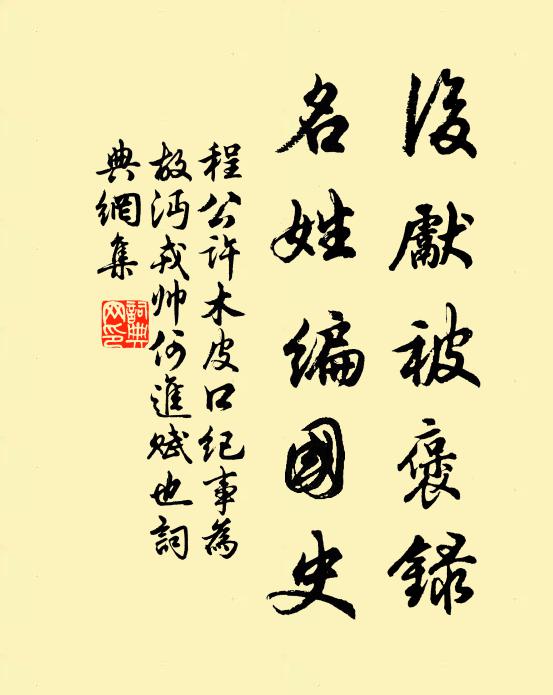 後獻被褒錄
名姓編國史
程公許木皮口紀事為
故沔戎帥何進賦也詞
典網集
詞典
网印